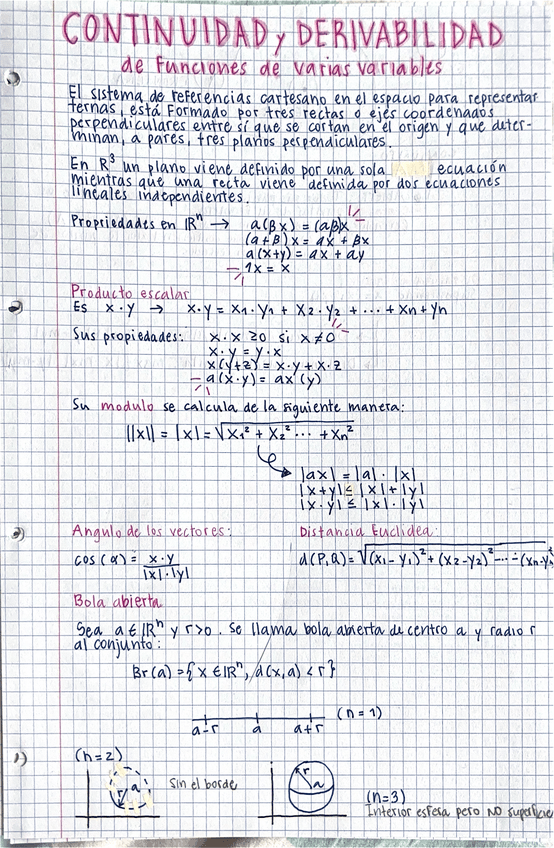 CONTINUIDAD y DERIVABILIDAD
de funciones de varias variables
El sistema de referencias cartesano en el espacio para representar
ternas, está formado por tres rectas o ejes coordenados
perpendiculares entre sí que se cortan en el origen y que deter-
minan, a pares, tres planos perpendiculares.
En R³ un plano viene definido por una sola ecuación
mientras que una recta viene definida por dos ecuaciones
lineales independientes.
Propriedades en ℝⁿ → a(βx) = (aβ)x
(a+β)x = ax + βx
a(x+y) = ax + ay
1x = x
Producto escalar
Es x·y → x·y = x₁·y₁ + x₂·y₂ + ··· + xₙ+yₙ
Sus propiedades: x·x ≥0 si x≠0
x·y = y·x
x(y+z) = x·y + x·z
a(x·y) = ax(y)
Su modulo se calcula de la siguiente manera:
||x|| = |x| = √x₁² + x₂² ··· + xₙ²
|ax| = |a|·|x|
|x+y| ≤ |x|+|y|
|x·y| ≤ |x|·|y|
Angulo de los vectores: Distancia Euclidea:
cos(α) = x·y / |x|·|y| d(P,Q) = √(x₁-y₁)² + (x₂-y₂)² ··· + (xₙ-yₙ)²
Bola abierta
Sea a ∈ ℝⁿ y r>0. Se llama bola abierta de centro a y radio r
al conjunto:
Br(a) = { x ∈ ℝⁿ, d(x,a) < r }
(n=1)
a-r a a+r
(n=2)
r a Sin el borde r a
(n=3)
Interior esfesa pero NO superficie